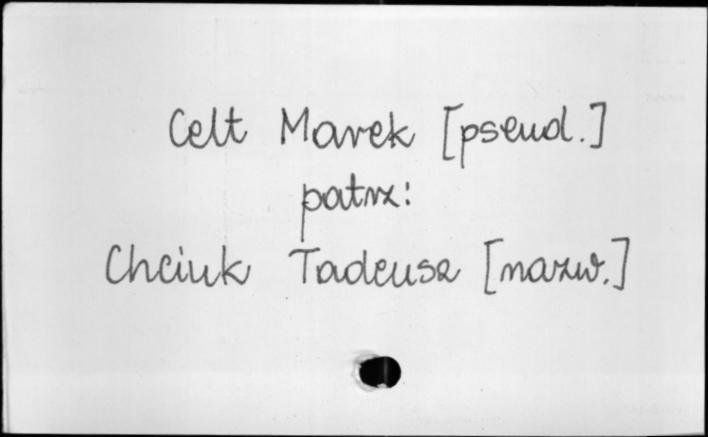 Celt Marek [pseud.]
patrz:
Chciuk Tadeusz [nazw.]